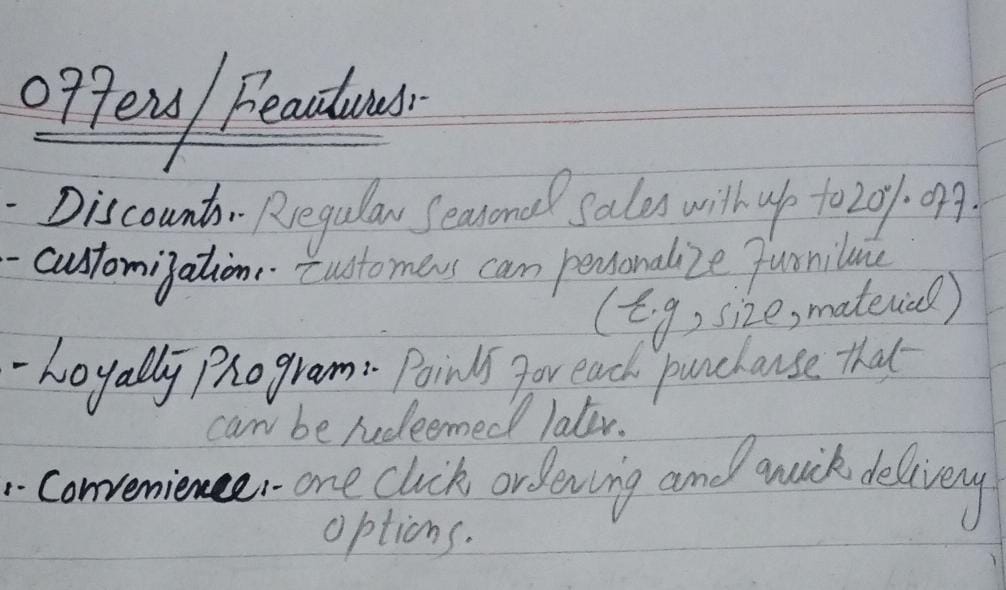 Offers/Feautures:-
- Discounts:- Regular Seasonal Sales with up to 20% off.
- Customization:- Customers can personalize furniture
(E.g, size, material)
- Loyalty Program:- Points for each purcharse that
can be redeemed later.
:- Convenience:- one click ordering and quick delivery
options.